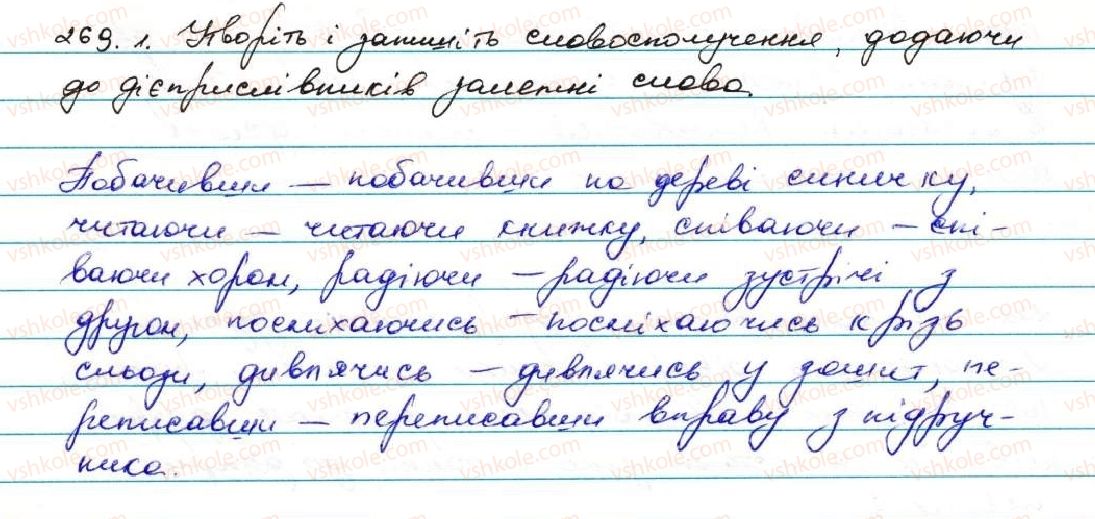 269. 1. Утворіть і запишіть словосполучення, додаючи
до дієприслівників залежні слова.
Побачивши — побачивши на дереві синичку,
читаючи — читаючи книжку, співаючи — спі-
ваючи хором, радіючи — радіючи зустрічі з
другом, посміхаючись — посміхаючись крізь
сльози, дивлячись — дивлячись у зошит, пе-
реписавши — переписавши вправу з підруч-
ника.